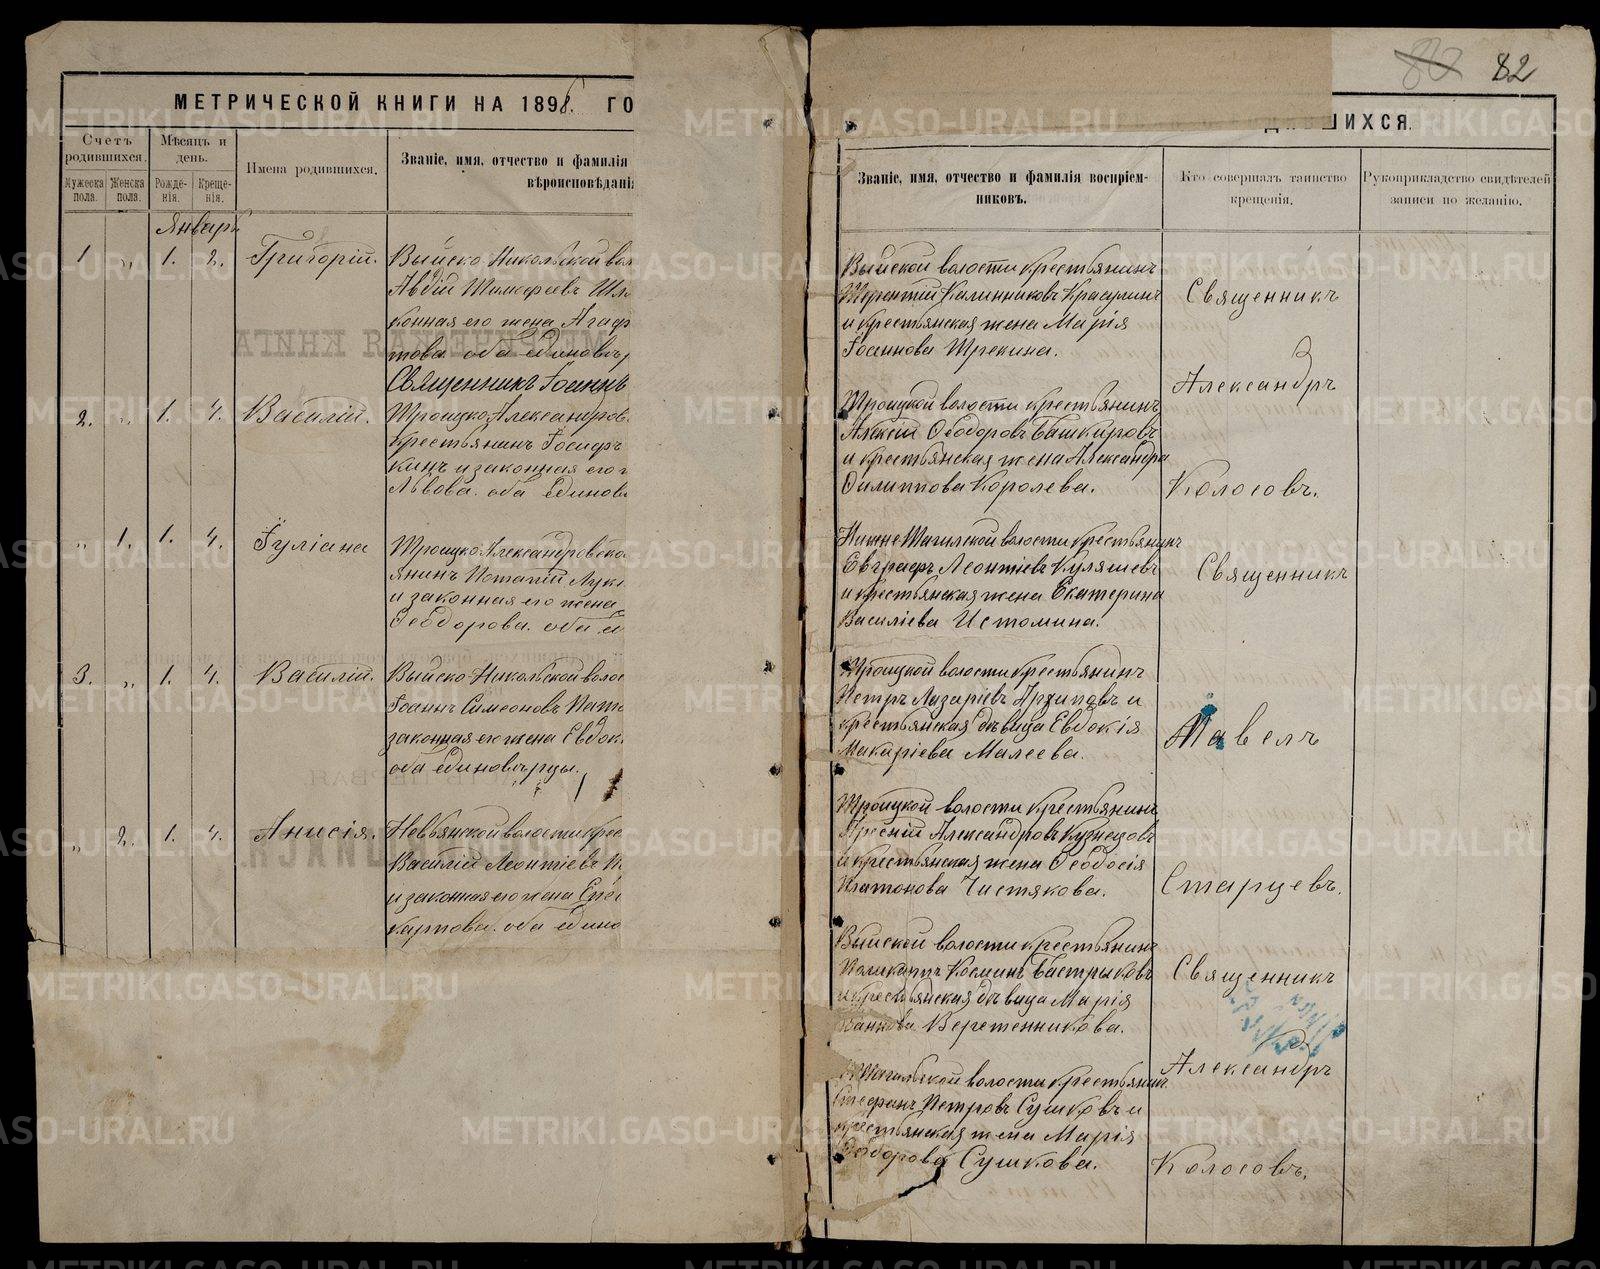 МЕТРИЧЕСКОЙ КНИГИ НА 1898. ГО
Счетъ родившихся.
Мѣсяцъ и день.
Имена родившихся.
Званіе, имя, отчество и фамилія
вѣроисповѣданія
Мужеска пола.
Женска пола.
Рожде-нія.
Креще-нія.
Январь
1 „ 1. 2. Григорій.
Выйско-Николаской вол
Авдій
конная его жена Агаф
това. оба единовѣр
Священникъ Іоаннъ
2. „ 1. 4. Василій.
Троицко-Александров.
крестьянинъ Іосифъ
кинъ и законная его
Львова. оба единов
„ 1. 1. 4. Іуліана
Троицко-Александровско
янинъ Потапій Лук
и законная его жена
Ѳеодорова. оба ед
3. „ 1. 4. Василій.
Выйско-Никольской волос
Іоаннъ Симеоновъ
законная его жена Евдок
оба единовѣрцы.
„ 2. 1. 4. Анисія.
Невьянской волости крес
Василій Леонтіевъ
и законная его жена
карпова. оба едино
82
ДИВШИХСЯ.
Званіе, имя, отчество и фамилія воспріем-
никовъ.
Кто совершалъ таинство
крещенія.
Рукоприкладство свидѣтелей
записи по желанію.
Выйской волости крестьянинъ
Терентій Калинниковъ Красулинъ
и крестьянская жена Марія
Іоаннова Трекина.
Священникъ
Александръ
Колосовъ.
Троицкой волости крестьянинъ
Алексій Ѳеодоровъ Башкировъ
и крестьянская жена Александра
Филиппова Королева.
Нижне-Тагилской волости крестьянинъ
Евграфъ Леонтіевъ Куляшевъ
и крестьянская жена Екатерина
Василіева Истомина.
Священникъ
Павелъ
Старцевъ.
Троицкой волости крестьянинъ
Петръ Лазаріевъ Архиповъ и
крестьянская дѣвица Евдокія
Макаріева Малеева.
Троицкой волости крестьянинъ
Арсеній Александровъ Кузнецовъ
и крестьянская жена Ѳеодосія
Платонова Чистякова.
Выйской волости крестьянинъ
Поликарпъ Косминъ Бастрыковъ
и крестьянская дѣвица Марія
Іоаннова Веретенникова.
Священникъ
Александръ
Колосовъ.
Тагильской волости крестьянинъ
Стефанъ Петровъ Сушковъ и
крестьянская жена Марія
Ѳеодорова Сушкова.
METRIKI.GASO-URAL.RU